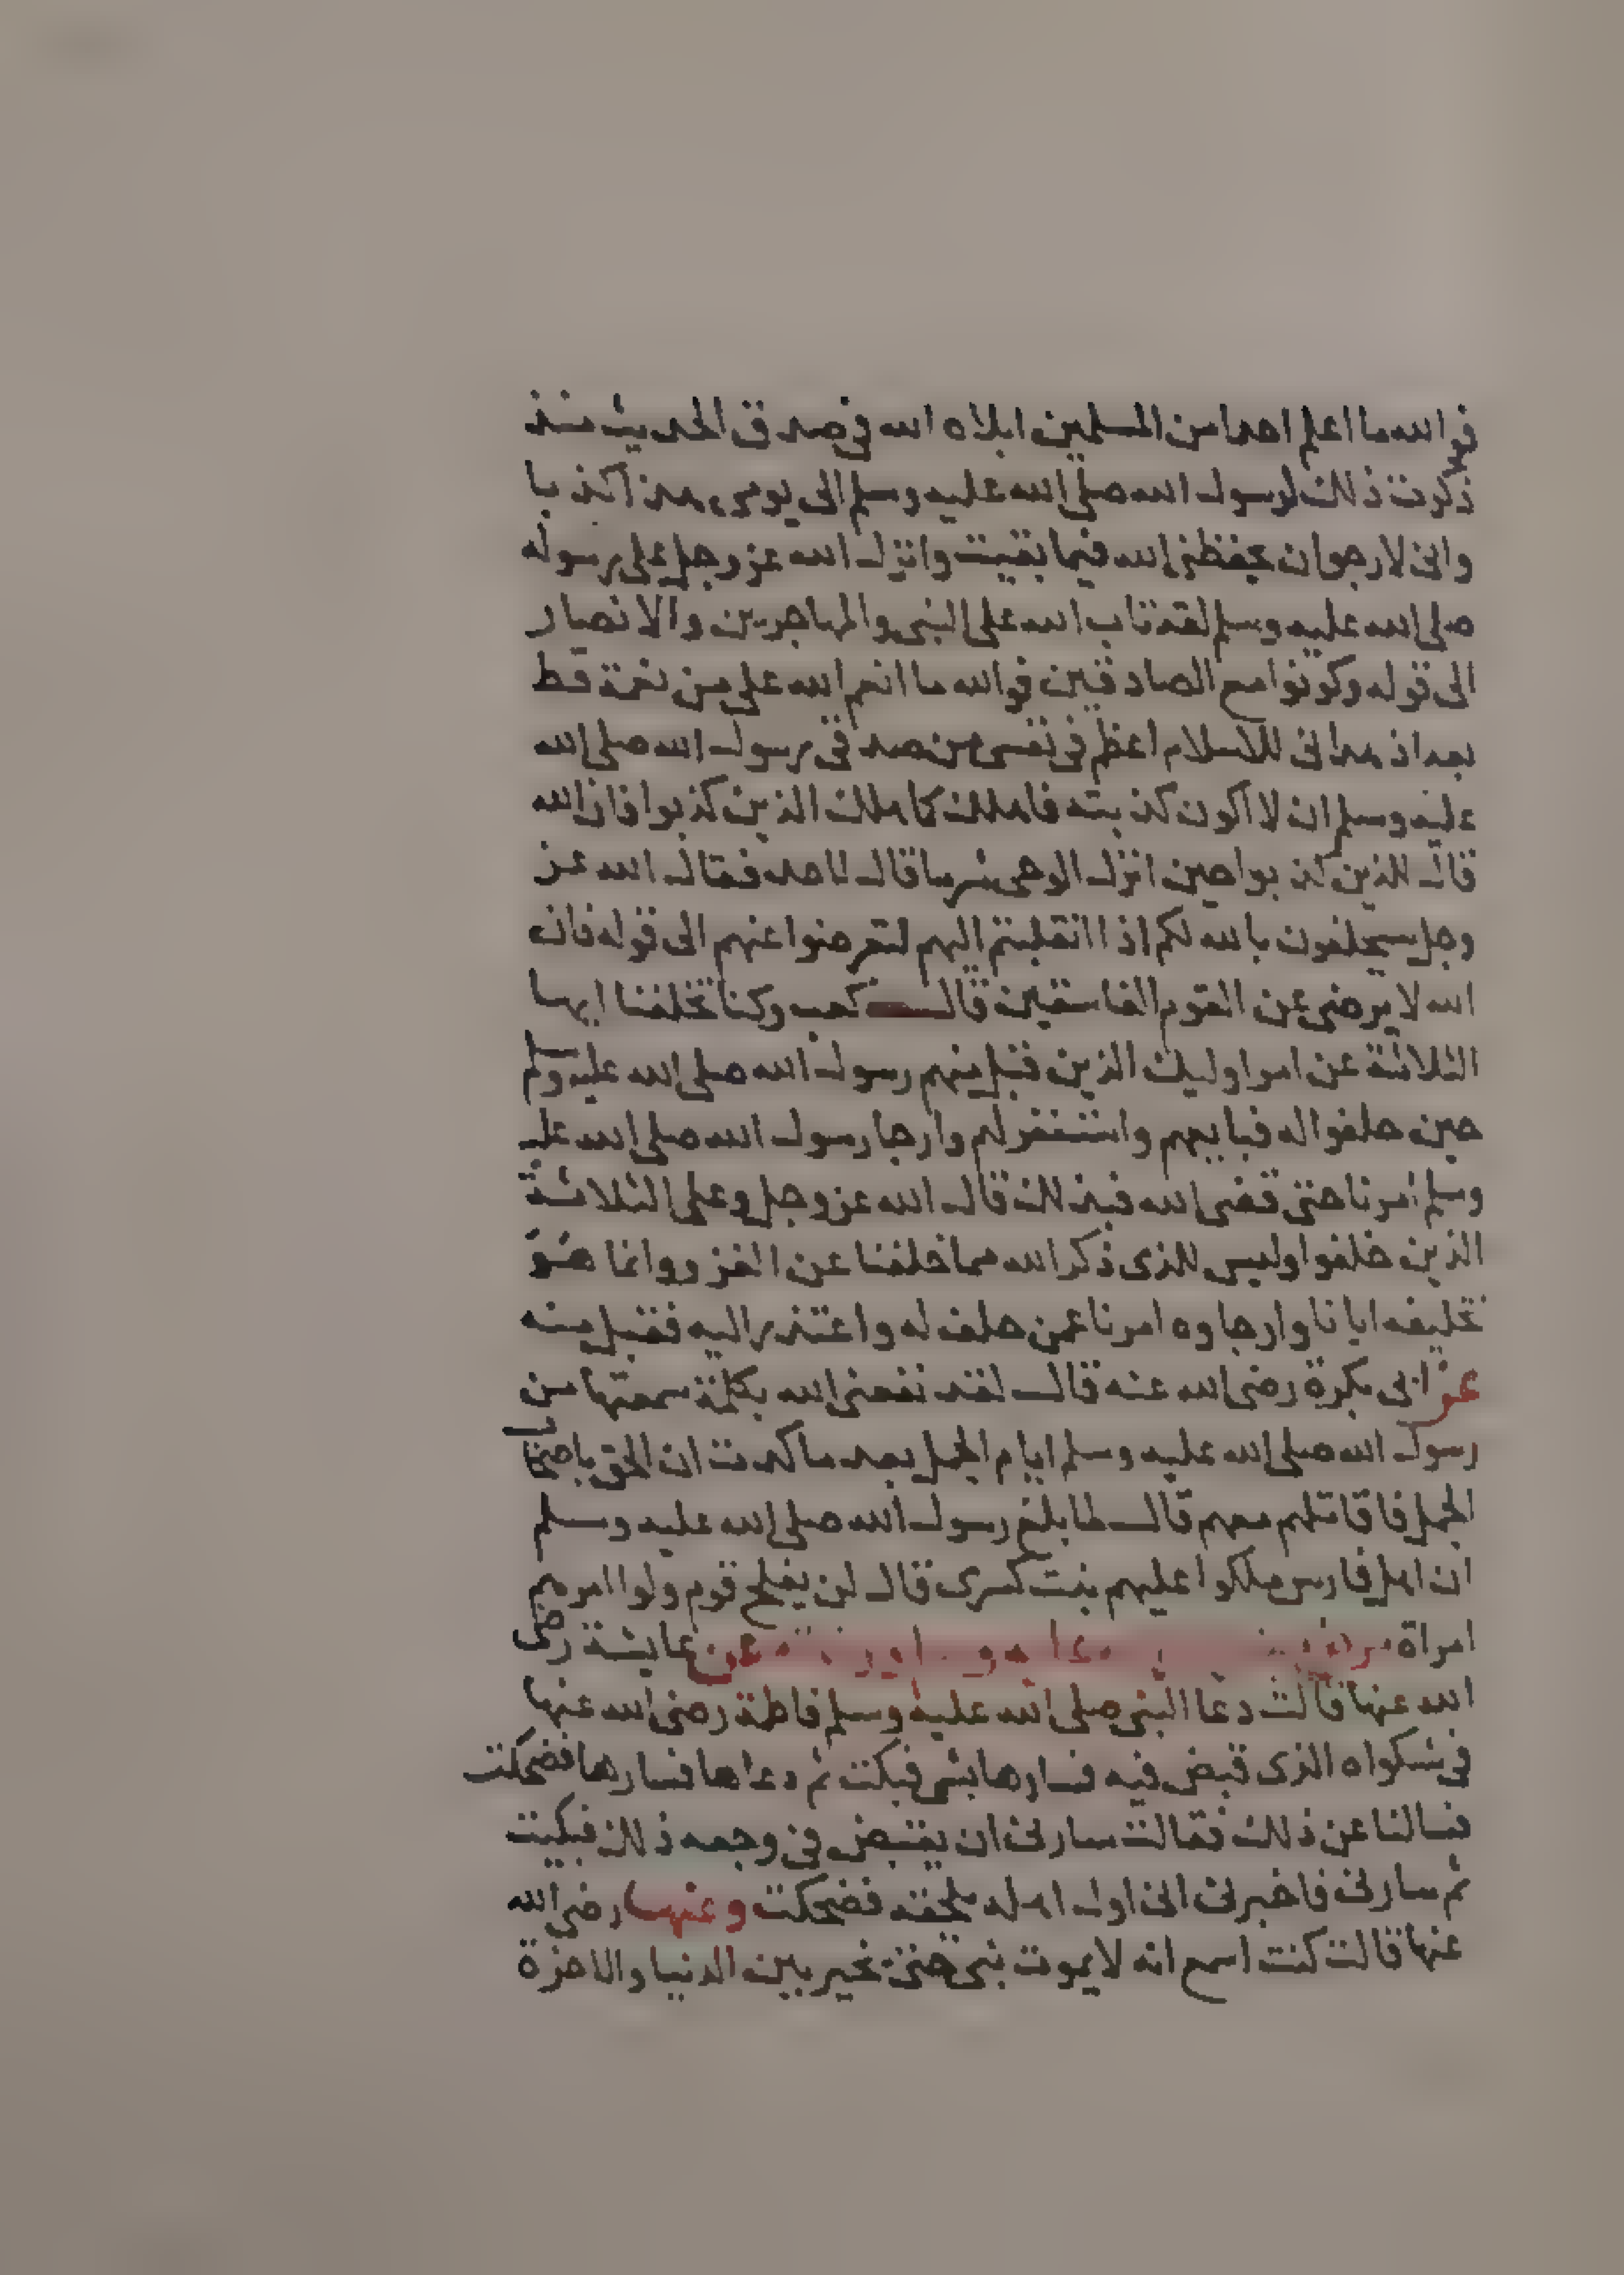 فوالله ما اعلم احدا من المسلمين ابلاه الله في صدق الحديث منذ
ذكرت ذلك لرسول الله صلى الله عليه وسلم الى يومي هذا كذبا
واني لارجوان يحفظني الله فيما بقيت وانزل الله عز وجل على رسوله
صلى الله عليه وسلم لقد تاب الله على النبي والمهاجرين والانصار
الى قوله وكونوا مع الصادقين فوالله ما انعم الله علي من نعمة قط
بعد اذ هداني للاسلام اعظم في نفسي من صدقي رسول الله صلى الله
عليه وسلم ان لا اكون كذبته فاهلك كما هلك الذين كذبوا فان الله
قال للذين كذبوا حين انزل الوحي شر ما قال لاحد فقال الله عز
وجل سيحلفون بالله لكم اذا انقلبتم اليهم لتعرضوا عنهم الى قوله فان
الله لا يرضى عن القوم الفاسقين قال كعب وكنا تخلفنا ايها
الثلاثة عن امر اوليك الذين قبل منهم رسول الله صلى الله عليه وسلم
حين حلفوا له فبايعهم واستغفر لهم وارجا رسول الله صلى الله عليه
وسلم امرنا حتى قضى الله فبذلك قال الله عز وجل وعلى الثلاثة
الذين خلفوا وليس الذي ذكر الله مما خلفنا عن الغزو وانما هو
تخليفه ايانا وارجاوه امرنا عمن حلف له واعتذر اليه فقبل منه
عن ابي بكرة رضي الله عنه قال لقد نفعني الله بكلمة سمعتها من
رسول الله صلى الله عليه وسلم ايام الجمل بعد ما كدت ان الحق باصحاب
الجمل فاقاتلهم معهم قال لما بلغ رسول الله صلى الله عليه وسلم
ان اهل فارس ملكوا عليهم بنت كسرى قال لن يفلح قوم ولوا امرهم
امراة عن عايشة رضي
الله عنها قالت دعا النبي صلى الله عليه وسلم فاطمة رضي الله عنها
في شكواه الذي قبض فيه فسارها بشي فبكت ثم دعاها فسارها فضحكت
فسالنا عن ذلك فقالت سارني ان يقبض في وجعه ذلك فبكيت
ثم سارني فاخبرني اني اول اهله يلحقه فضحكت وعنها رضي الله
عنها قالت كنت اسمع انه لا يموت نبي حتى يخير بين الدنيا والاخرة